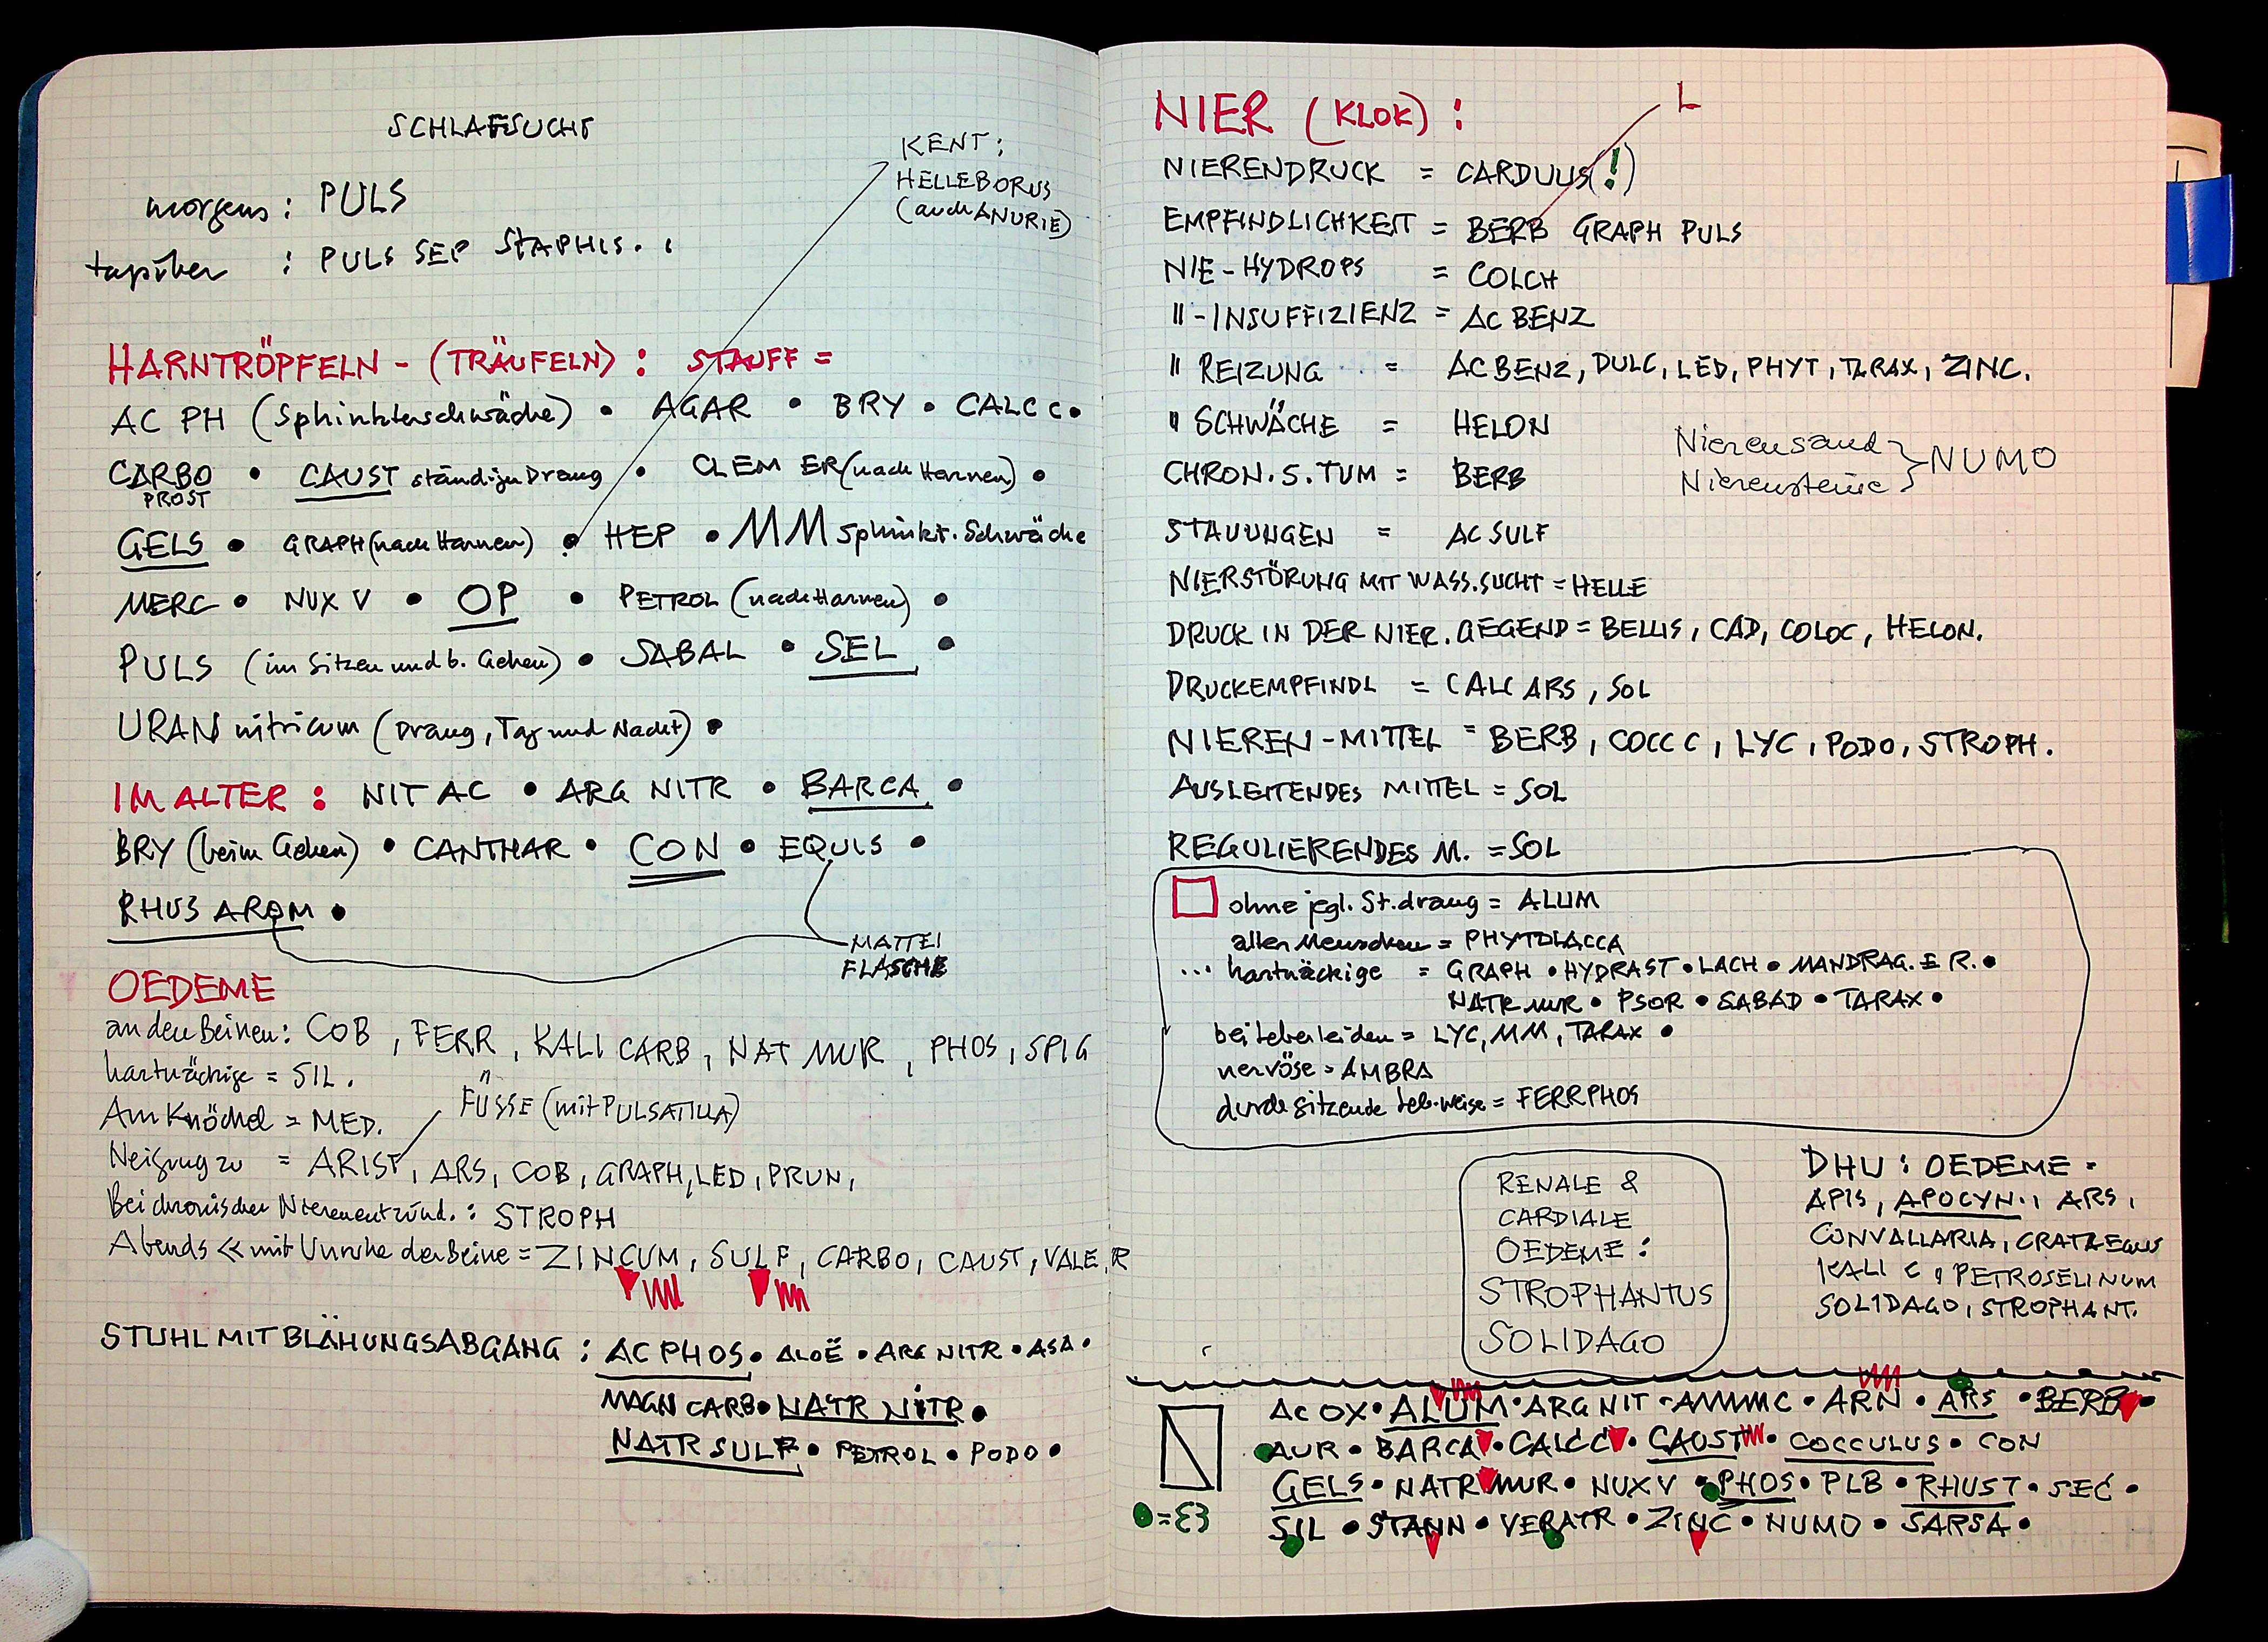 SCHLAFSUCHT
morgens : PULS
tagsüber : PULS SEP STAPHIS.
KENT :
HELLEBORUS
(auch ANURIE)
HARNTRÖPFELN - (TRÄUFELN) : STAUFF =
AC PH (Sphinkterschwäche) • AGAR • BRY • CALC C •
CARBO • CAUST ständiger Drang • CLEM ER (nach Harnen) •
PROST
GELS • GRAPH (nach Harnen) • HEP • MM Sphinkt. Schwäche
MERC • NUX V • OP • PETROL (nach Harnen) •
PULS (im Sitzen und b. Gehen) • SABAL • SEL •
URAN nitricum (Drang, Tag und Nacht) •
IM ALTER : NIT AC • ARG NITR • BARCA •
BRY (beim Gehen) • CANTHAR • CON • EQUIS •
RHUS AROM •
MATTEI
FLASCHE
OEDEME
an den Beinen : COB, FERR, KALI CARB, NAT MUR, PHOS, SPIG
hartnäckige = SIL.
" FÜSSE (mit PULSATILLA)
Am Knöchel = MED.
Neigung zu = ARIST, ARS, COB, GRAPH, LED, PRUN,
Bei chronischer Nierenentzünd. : STROPH
Abends << mit Unruhe der Beine = ZINCUM, SULF, CARBO, CAUST, VALER
STUHL MIT BLÄHUNGSABGANG : AC PHOS • ALOË • ARG NITR • ASA •
MAGN CARB • NATR NITR •
NATR SULF • PETROL • PODO •
NIER (KLOK) : L
NIERENDRUCK = CARDUUS (!)
EMPFINDLICHKEIT = BERB GRAPH PULS
NIE-HYDROPS = COLCH
" -INSUFFIZIENZ = AC BENZ
" REIZUNG = AC BENZ, DULC, LED, PHYT, TARAX, ZINC.
" SCHWÄCHE = HELON
Nierensand
Nierensteine } NUMO
CHRON. S. TUM = BERB
STAUUNGEN = AC SULF
NIERSTÖRUNG MIT WASS.SUCHT = HELLE
DRUCK IN DER NIER. GEGEND = BELLIS, CAD, COLOC, HELON.
DRUCKEMPFINDL = CALC ARS, SOL
NIEREN-MITTEL = BERB, COCC C, LYC, PODO, STROPH.
AUSLEITENDES MITTEL = SOL
REGULIERENDES M. = SOL
ohne jegl. St.drang = ALUM
alter Menschen = PHYTOLACCA
... hartnäckige = GRAPH • HYDRAST • LACH • MANDRAG. E R. •
NATR MUR • PSOR • SABAD • TARAX •
bei Leberleiden = LYC, MM, TARAX •
nervöse = AMBRA
durch sitzende Leb.weise = FERRPHOS
RENALE &
CARDIALE
OEDEME :
STROPHANTUS
SOLIDAGO
DHU : OEDEME -
APIS, APOCYN., ARS,
CONVALLARIA, CRATAEGUS
KALI C, PETROSELINUM
SOLIDAGO, STROPHANT.
AC OX • ALUM • ARG NIT • AMMC • ARN • ARS • BERB •
AUR • BARCA • CALC C • CAUST • COCCULUS • CON
GELS • NATR MUR • NUX V • PHOS • PLB • RHUST • SEC •
SIL • STANN • VERATR • ZINC • NUMO • SARSA •